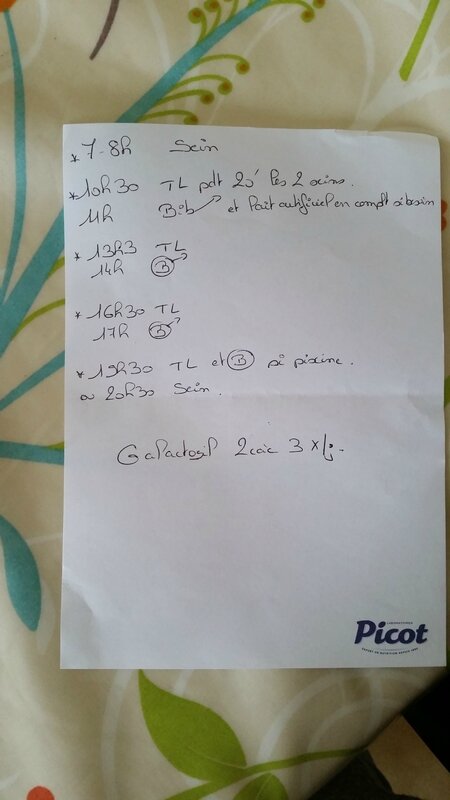 * 7-8h Sein
* 10h30 TL pdt 20' les 2 seins.
11h Bib et lait artificiel en complt si besoin
* 13h3 TL
14h B
* 16h30 TL
17h B
* 19h30 TL et B si piscine.
ou 20h30 Sein.
Galactogil 2 càc 3 x/j.
LABORATOIRES
Picot
EXPERT EN NUTRITION DEPUIS